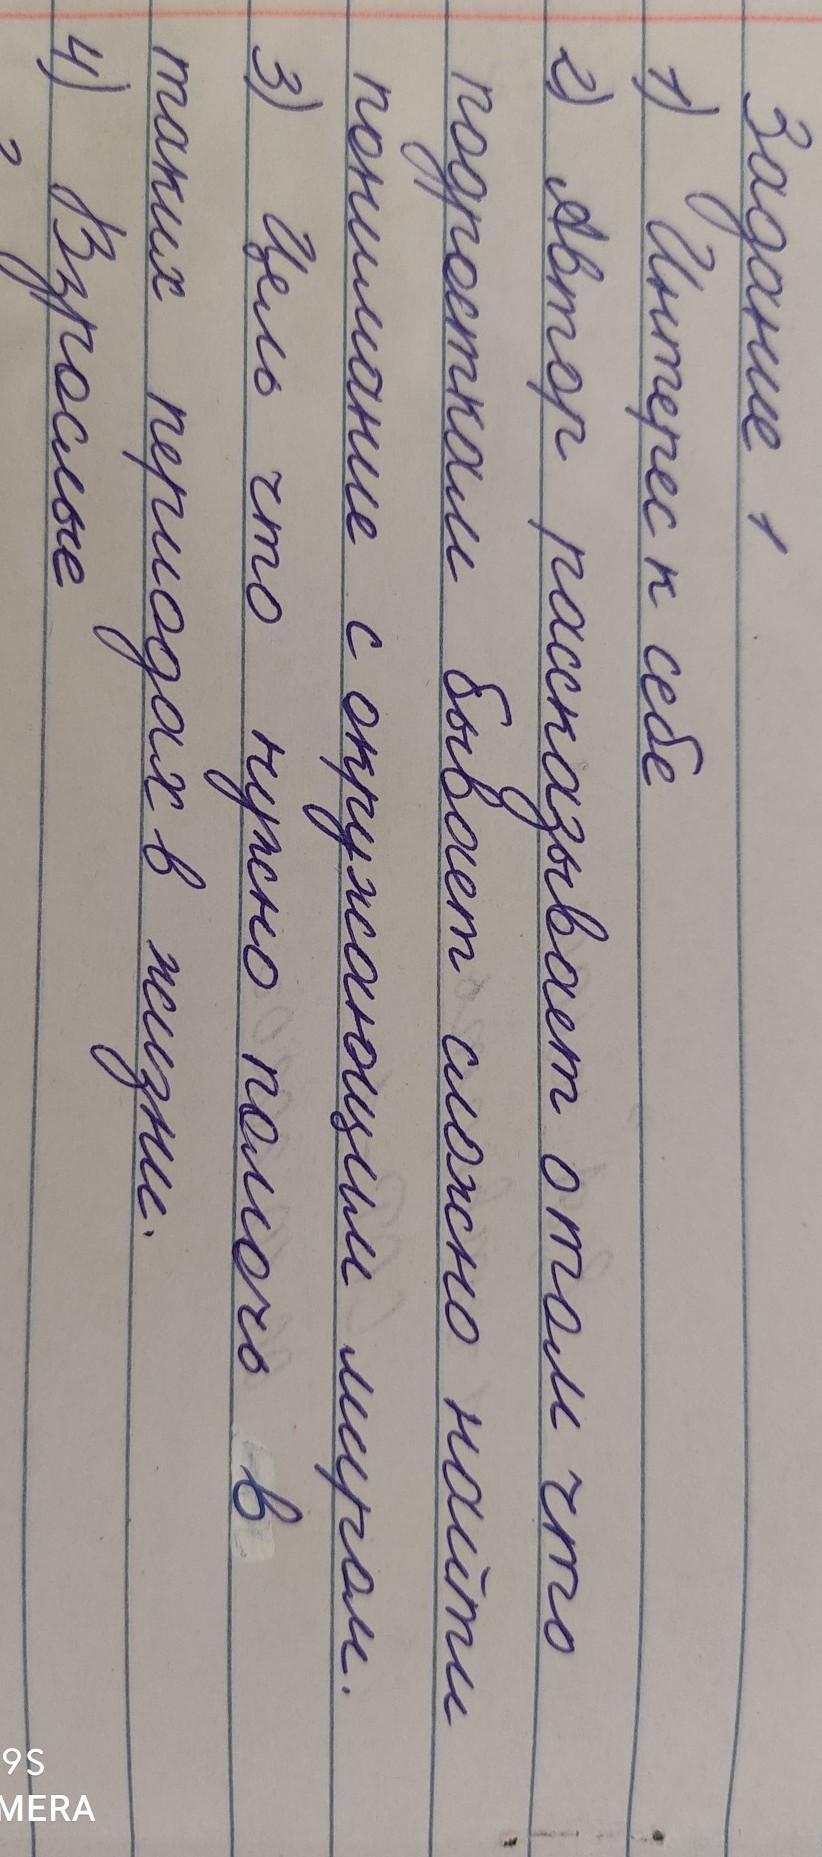 Задание 1
1) Интерес к себе
2) Автор рассказывает о том что
подросткам бывает сложно найти
понимание с окружающим миром.
3) Цель что нужно помочь в
таких периодах в жизни.
4) Взрослые
9S
MERA